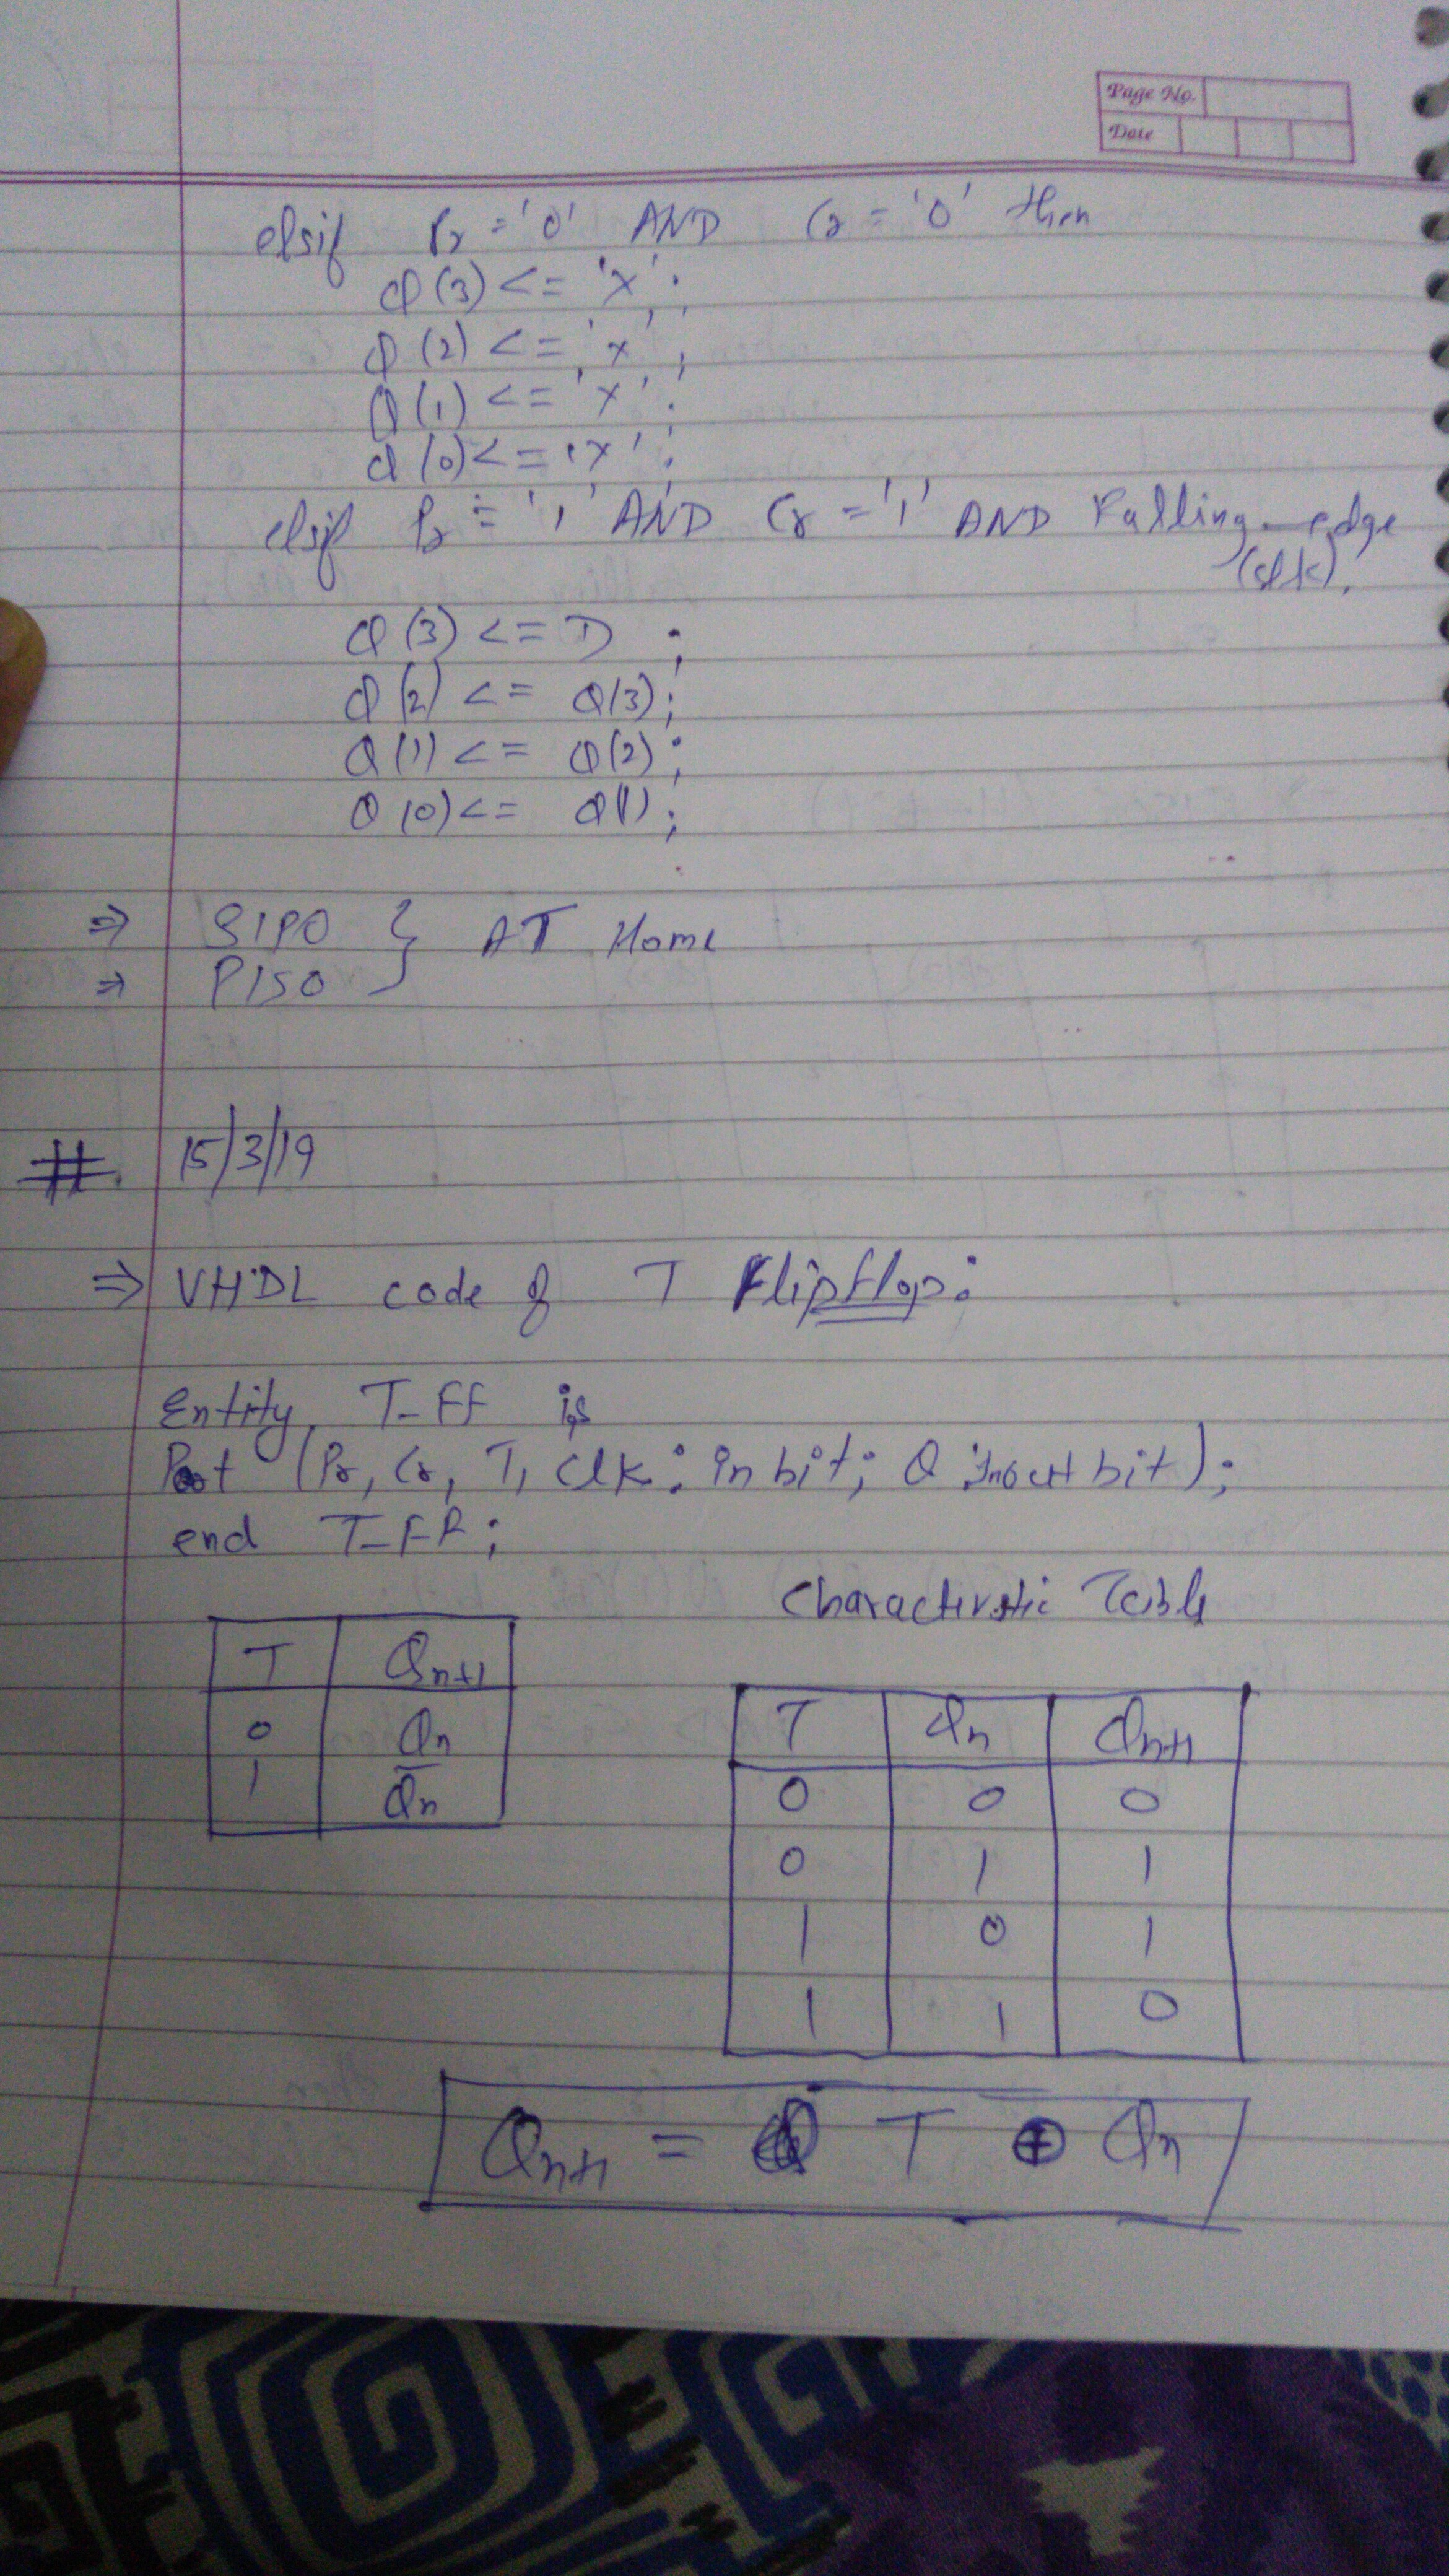 Page No.
Date
elsif Pr = '0' AND Cr = '0' then
Q(3) <= 'x';
Q(2) <= 'x';
Q(1) <= 'x';
Q(0) <= 'x';
elsif Pr = '1' AND Cr = '1' AND Falling_edge
(clk),
Q(3) <= D ;
Q(2) <= Q(3);
Q(1) <= Q(2);
Q(0) <= Q(1);
⇒ SIPO } AT Home
⇒ PISO
# 15/3/19
⇒ VHDL code of T Flipflop:
Entity T_FF is
Port (Pr, Cr, T, Clk: in bit; Q inout bit);
end T_FF;
Characteristic Table
T Qn+1
0 Qn
1 Q̅n
T Qn Qn+1
0 0 0
0 1 1
1 0 1
1 1 0
Qn+1 = T ⊕ Qn